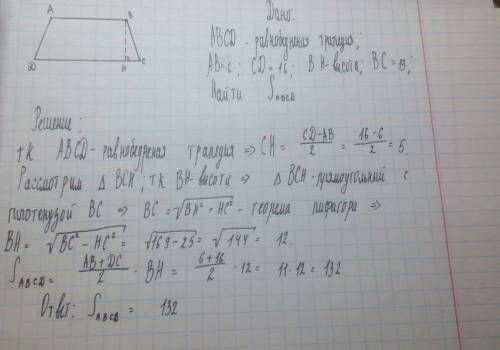 A
B
D
H
C
Дано:
ABCD - равнобедренная трапеция;
AB=6; CD=16; BH-высота; BC=13;
Найти S_ABCD
Решение:
тк ABCD - равнобедреная трапеция ⇒ CH = (CD-AB)/2 = (16-6)/2 = 5.
Рассмотрим △ BCH; тк BH-высота ⇒ △ BCH-прямоугольный с
гипотенузой BC ⇒ BC = √(BH² + HC²) - теорема пифагора ⇒
BH = √(BC² - HC²) = √(169-25) = √144 = 12.
S_ABCD = (AB+DC)/2 · BH = (6+16)/2 · 12 = 11·12 = 132
Ответ: S_ABCD = 132